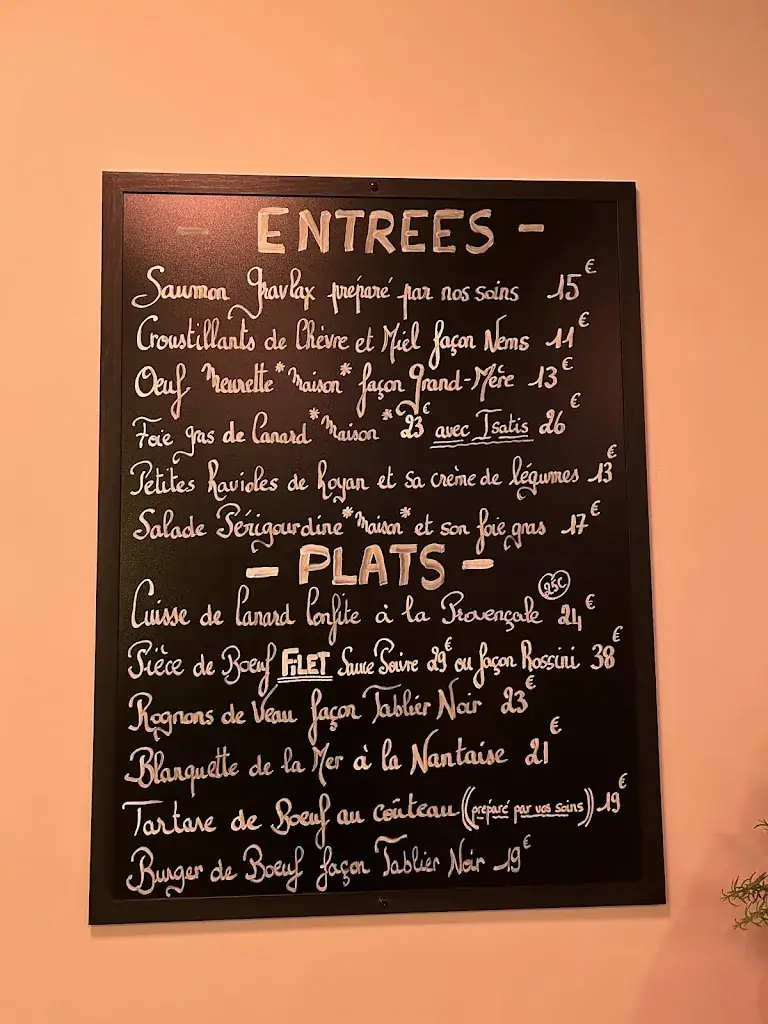 - ENTREES -
Saumon gravlax préparé par nos soins 15€
Croustillants de Chèvre et Miel façon Nems 11€
Oeuf Meurette *Maison* façon Grand-Mère 13€
Foie gras de Canard *Maison* 23€ avec Isatis 26€
Petites Ravioles de Royan et sa crème de légumes 13€
Salade Périgourdine *Maison* et son foie gras 17€
- PLATS -
Cuisse de Canard Confite à la Provençale 24€
Pièce de Boeuf FILET Sauce Poivre 29€ ou façon Rossini 38€
Rognons de Veau façon Tablier Noir 23€
Blanquette de la Mer à la Nantaise 21€
Tartare de Boeuf au coûteau ((preparé par vos soins)) 19€
Burger de Boeuf façon Tablier Noir 19€